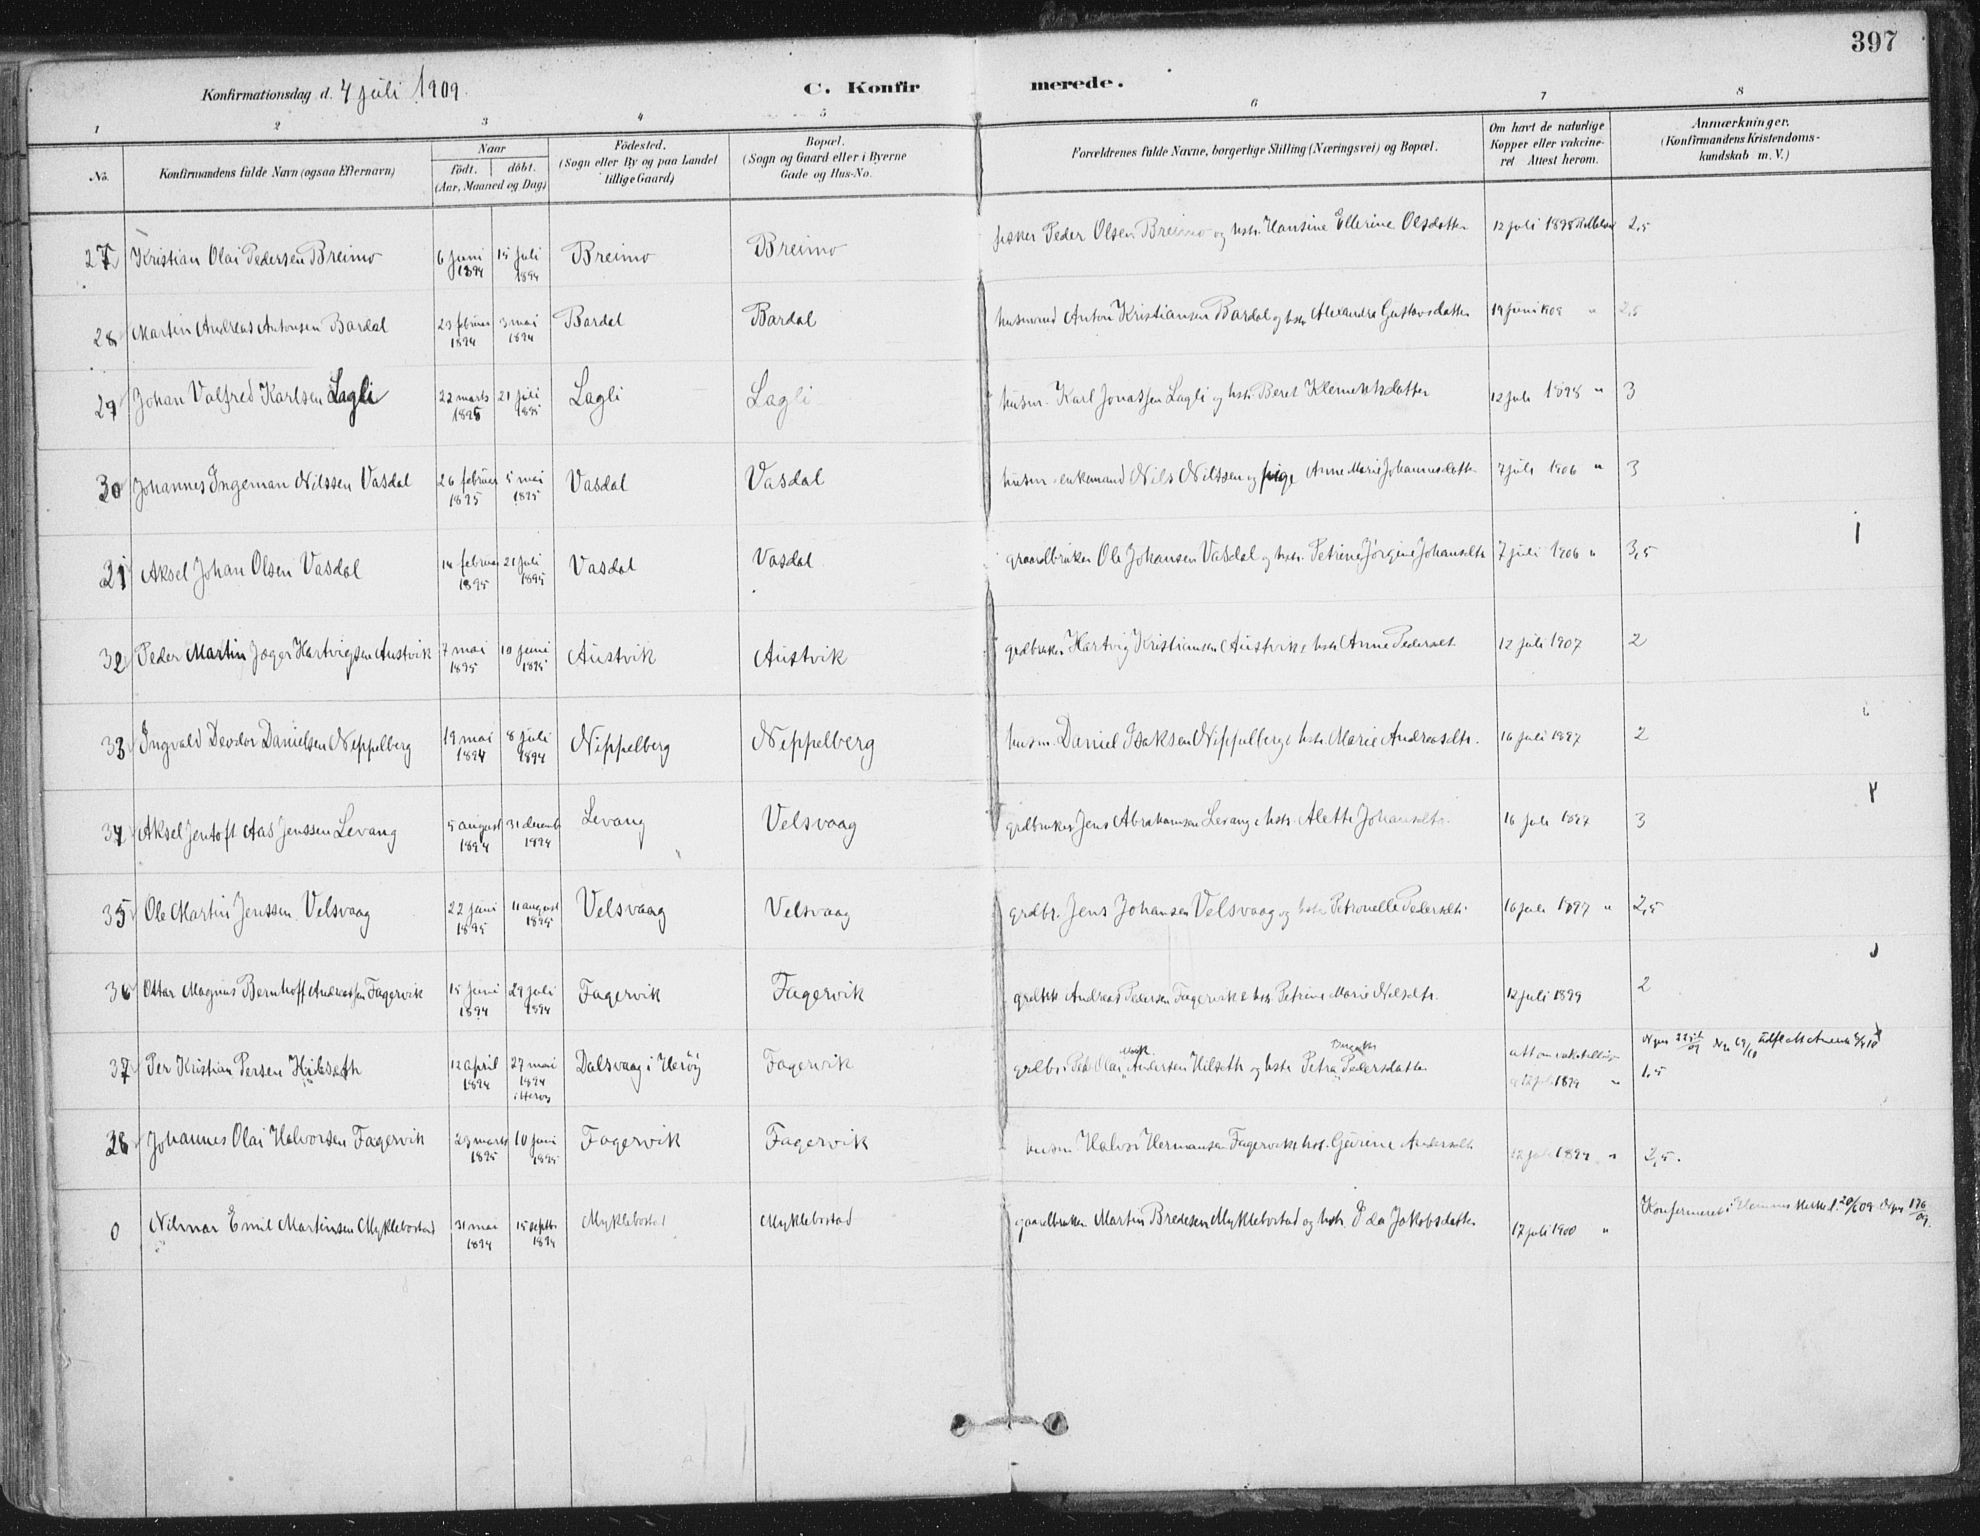 397
Konfirmationsdag d. 4 juli 1909
C. Konfirmerede.
1 2 3 4 5 6 7 8
No.
Konfirmandens fulde Navn (ogsaa Efternavn)
Naar
født. døbt.
(Aar, Maaned og Dag)
Fødested.
(Sogn eller By og paa Landet
tillige Gaard)
Bopæl.
(Sogn og Gaard eller i Byerne
Gade og Hus-No.
Forældrenes fulde Navne, borgerlige Stilling (Næringsvei) og Bopæl.
Om havt de naturlige
Kopper eller vakcine-
ret Attest herom.
Anmærkninger.
(Konfirmandens Kristendoms-
kundskab m. V.)
27 Kristian Olai Pedersen Breimo 6 juni 1894 15 juli 1894 Breimo Breimo fisker Peder Olsen Breimo og hstr. Hansine Ellerine Olsdatter 12 juli 1898 2,5
28 Martin Andreas Antonsen Bardal 23 februar 1894 3 mai 1894 Bardal Bardal husmand Anton Kristiansen Bardal og hstr Alexandra Gustavsdatter 19 juni 1909 " 2,5
29 Johan Valfred Karlsen Lagli 22 marts 1895 21 juli 1895 Lagli Lagli husm. Karl Jonassen Lagli og hstr. Beret Klemetsdatter 12 juli 1898 " 3
30 Johannes Ingeman Nilssen Vasdal 26 februar 1895 5 mai 1895 Vasdal Vasdal husm - enkemand Nils Nilssen og pige Anne Marie Johannesdatter 7 juli 1906 " 3
31 Aksel Johan Olsen Vasdal 14 februar 1895 21 juli 1895 Vasdal Vasdal gaardbruker Ole Johansen Vasdal og hstr. Petrine Jørgine Johansdtr 7 juli 1906 " 3,5
32 Peder Martin Jæger Hartvigsen Austvik 7 mai 1895 10 juni 1895 Austvik Austvik grdbruker Hartvig Kristiansen Austvik & hstr Anne Pedersdt 12 juli 1907 2
33 Ingvald Deodor Danielsen Nippelberg 19 mai 1894 8 juli 1894 Nippelberg Nippelberg husm. Daniel Isaksen Nippelberg & hstr. Marie Andreasdtr. 16 juli 1897 2
34 Aksel Jentoft Aas Jenssen Levang 5 august 1894 31 decemb 1894 Levang Velsvaag grdbruker Jens Abrahamsen Levang & hstr. Alette Johansdtr. 16 juli 1897 3
35 Ole Martin Jenssen Velsvaag 22 juni 1895 11 august 1895 Velsvaag Velsvaag grdbr. Jens Johansen Velsvaag og hstr Petronelle Pedersdtr. 16 juli 1897 " 2,5
36 Ottar Magnus Bernhoff Andreassen Fagervik 15 juni 1894 29 juli 1894 Fagervik Fagervik Andreas Pedersen Fagervik & hstr Petrine Marie Nilsdtr. 12 juli 1899 2
37 Per Kristian Persen Hilseth 12 april 1894 27 mai 1894 i Herøy Dalsvaag i Herøy Fagervik Peder Olai Andersen Hilseth og hstr Petra Pedersdatter 1899 " 1,5
38 Johannes Olai Halvorsen Fagervik 29 marts 1895 10 juni 1895 Fagervik Fagervik husm. Halvor Hermansen Fagervik & hst. Gurine Andersdt 12 juli 1899 " 2,5.
0 Nilmar Emil Martinsen Myklebostad 31 mai 1894 15 septbr 1894 Myklebostad Myklebostad gaardbruker Martin Bredesen Myklebostad og hstr. Ida Jakobsdatter 17 juli 1900 " Konfirmeret i 20/6 09. 176/09.